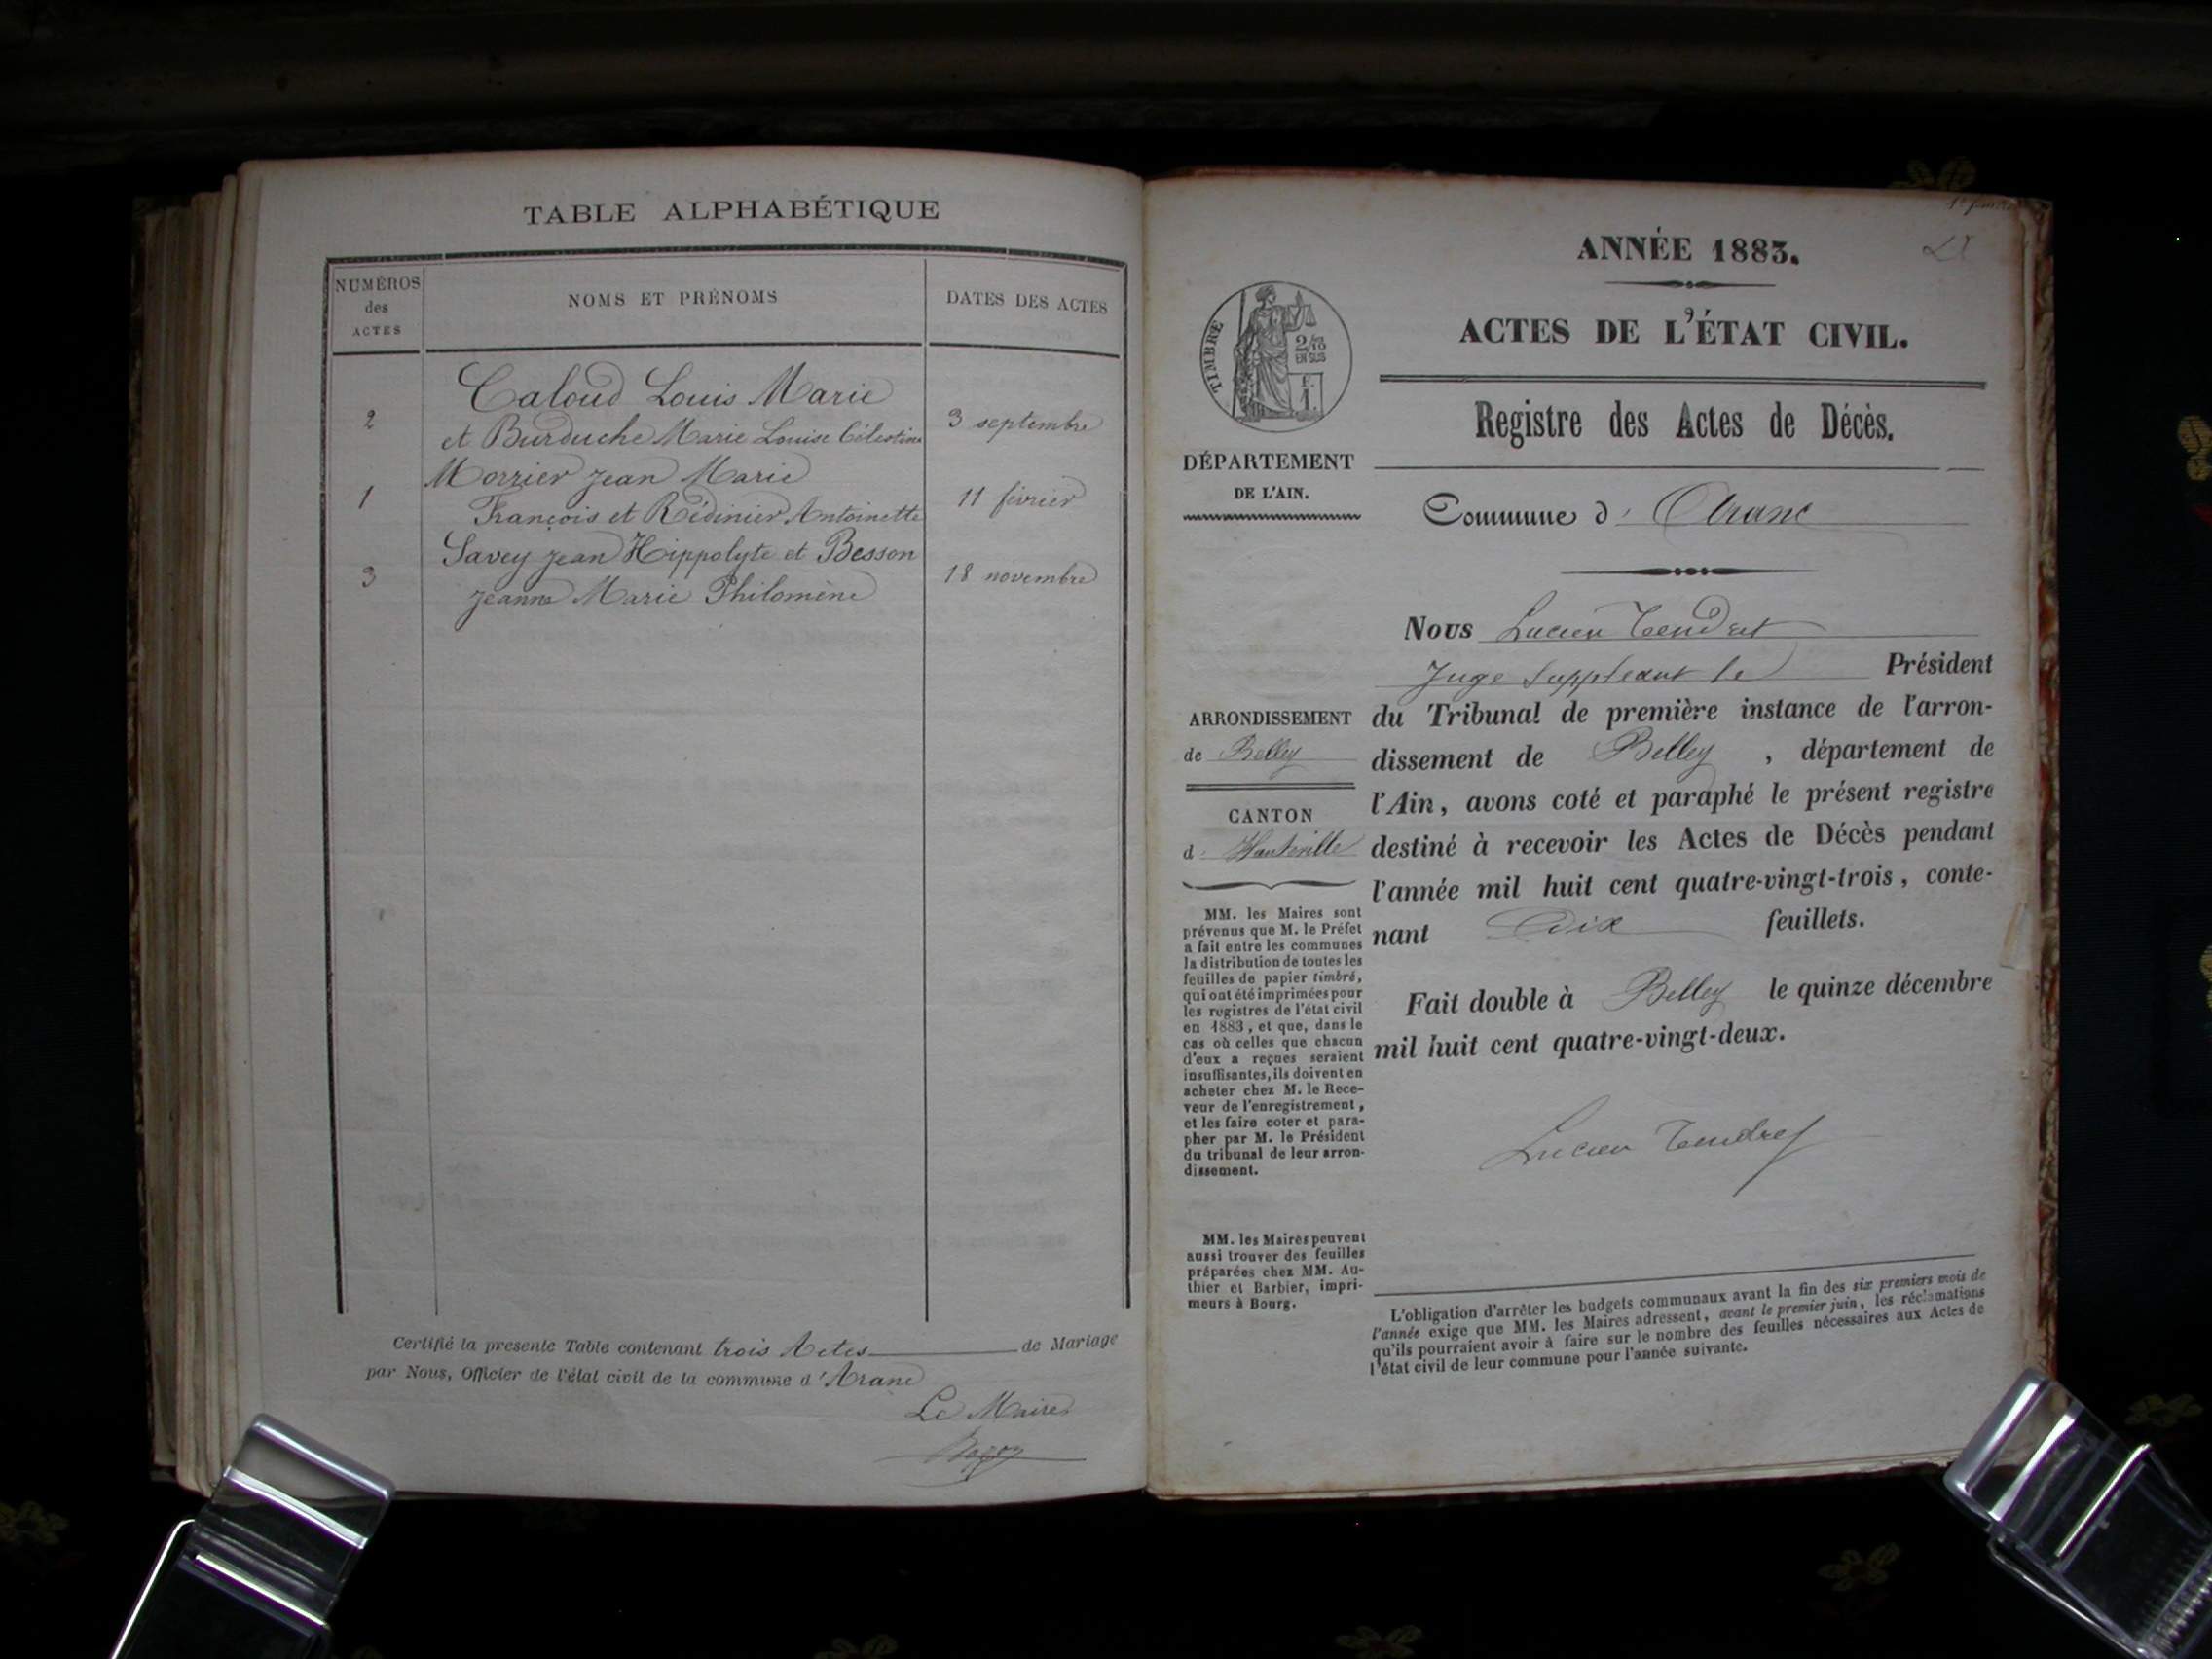 TABLE ALPHABÉTIQUE
NUMÉROS des ACTES
NOMS ET PRÉNOMS
DATES DES ACTES
2
Caloud Louis Marie
et Burduche Marie Louise Célestine
3 septembre
1
Morrier Jean Marie
François et Rédinier Antoinette
11 février
3
Savey Jean Hippolyte et Besson
Jeanne Marie Philomène
18 novembre
Certifié la presente Table contenant trois Actes de Mariage
par Nous, Officier de l'état civil de la commune d'Aranc
Le Maire
ANNÉE 1883.
ACTES DE L'ÉTAT CIVIL.
Registre des Actes de Décès.
TIMBRE
2/10
EN SUS
F.
1.
DÉPARTEMENT
DE L'AIN.
Commune d' Aranc
Nous Lucien Tendret
Juge Suppléant le Président
ARRONDISSEMENT
de Belley
CANTON
d' Hauteville
du Tribunal de première instance de l'arron-
dissement de Belley, département de
l'Ain, avons coté et paraphé le présent registre
destiné à recevoir les Actes de Décès pendant
l'année mil huit cent quatre-vingt-trois, conte-
nant Dix feuillets.
Fait double à Belley le quinze décembre
mil huit cent quatre-vingt-deux.
Lucien Tendret
MM. les Maires sont
prévenus que M. le Préfet
a fait entre les communes
la distribution de toutes les
feuilles de papier timbré,
qui ont été imprimées pour
les registres de l'état civil
en 1883, et que, dans le
cas où celles que chacun
d'eux a reçues seraient
insuffisantes, ils doivent en
acheter chez M. le Rece-
veur de l'enregistrement,
et les faire coter et para-
pher par M. le Président
du tribunal de leur arron-
dissement.
MM. les Maires peuvent
aussi trouver des feuilles
préparées chez MM. Au-
thier et Barbier, impri-
meurs à Bourg.
L'obligation d'arrêter les budgets communaux avant la fin des six premiers mois de
l'année exige que MM. les Maires adressent, avant le premier juin, les réclamations
qu'ils pourraient avoir à faire sur le nombre des feuilles nécessaires aux Actes de
l'état civil de leur commune pour l'année suivante.